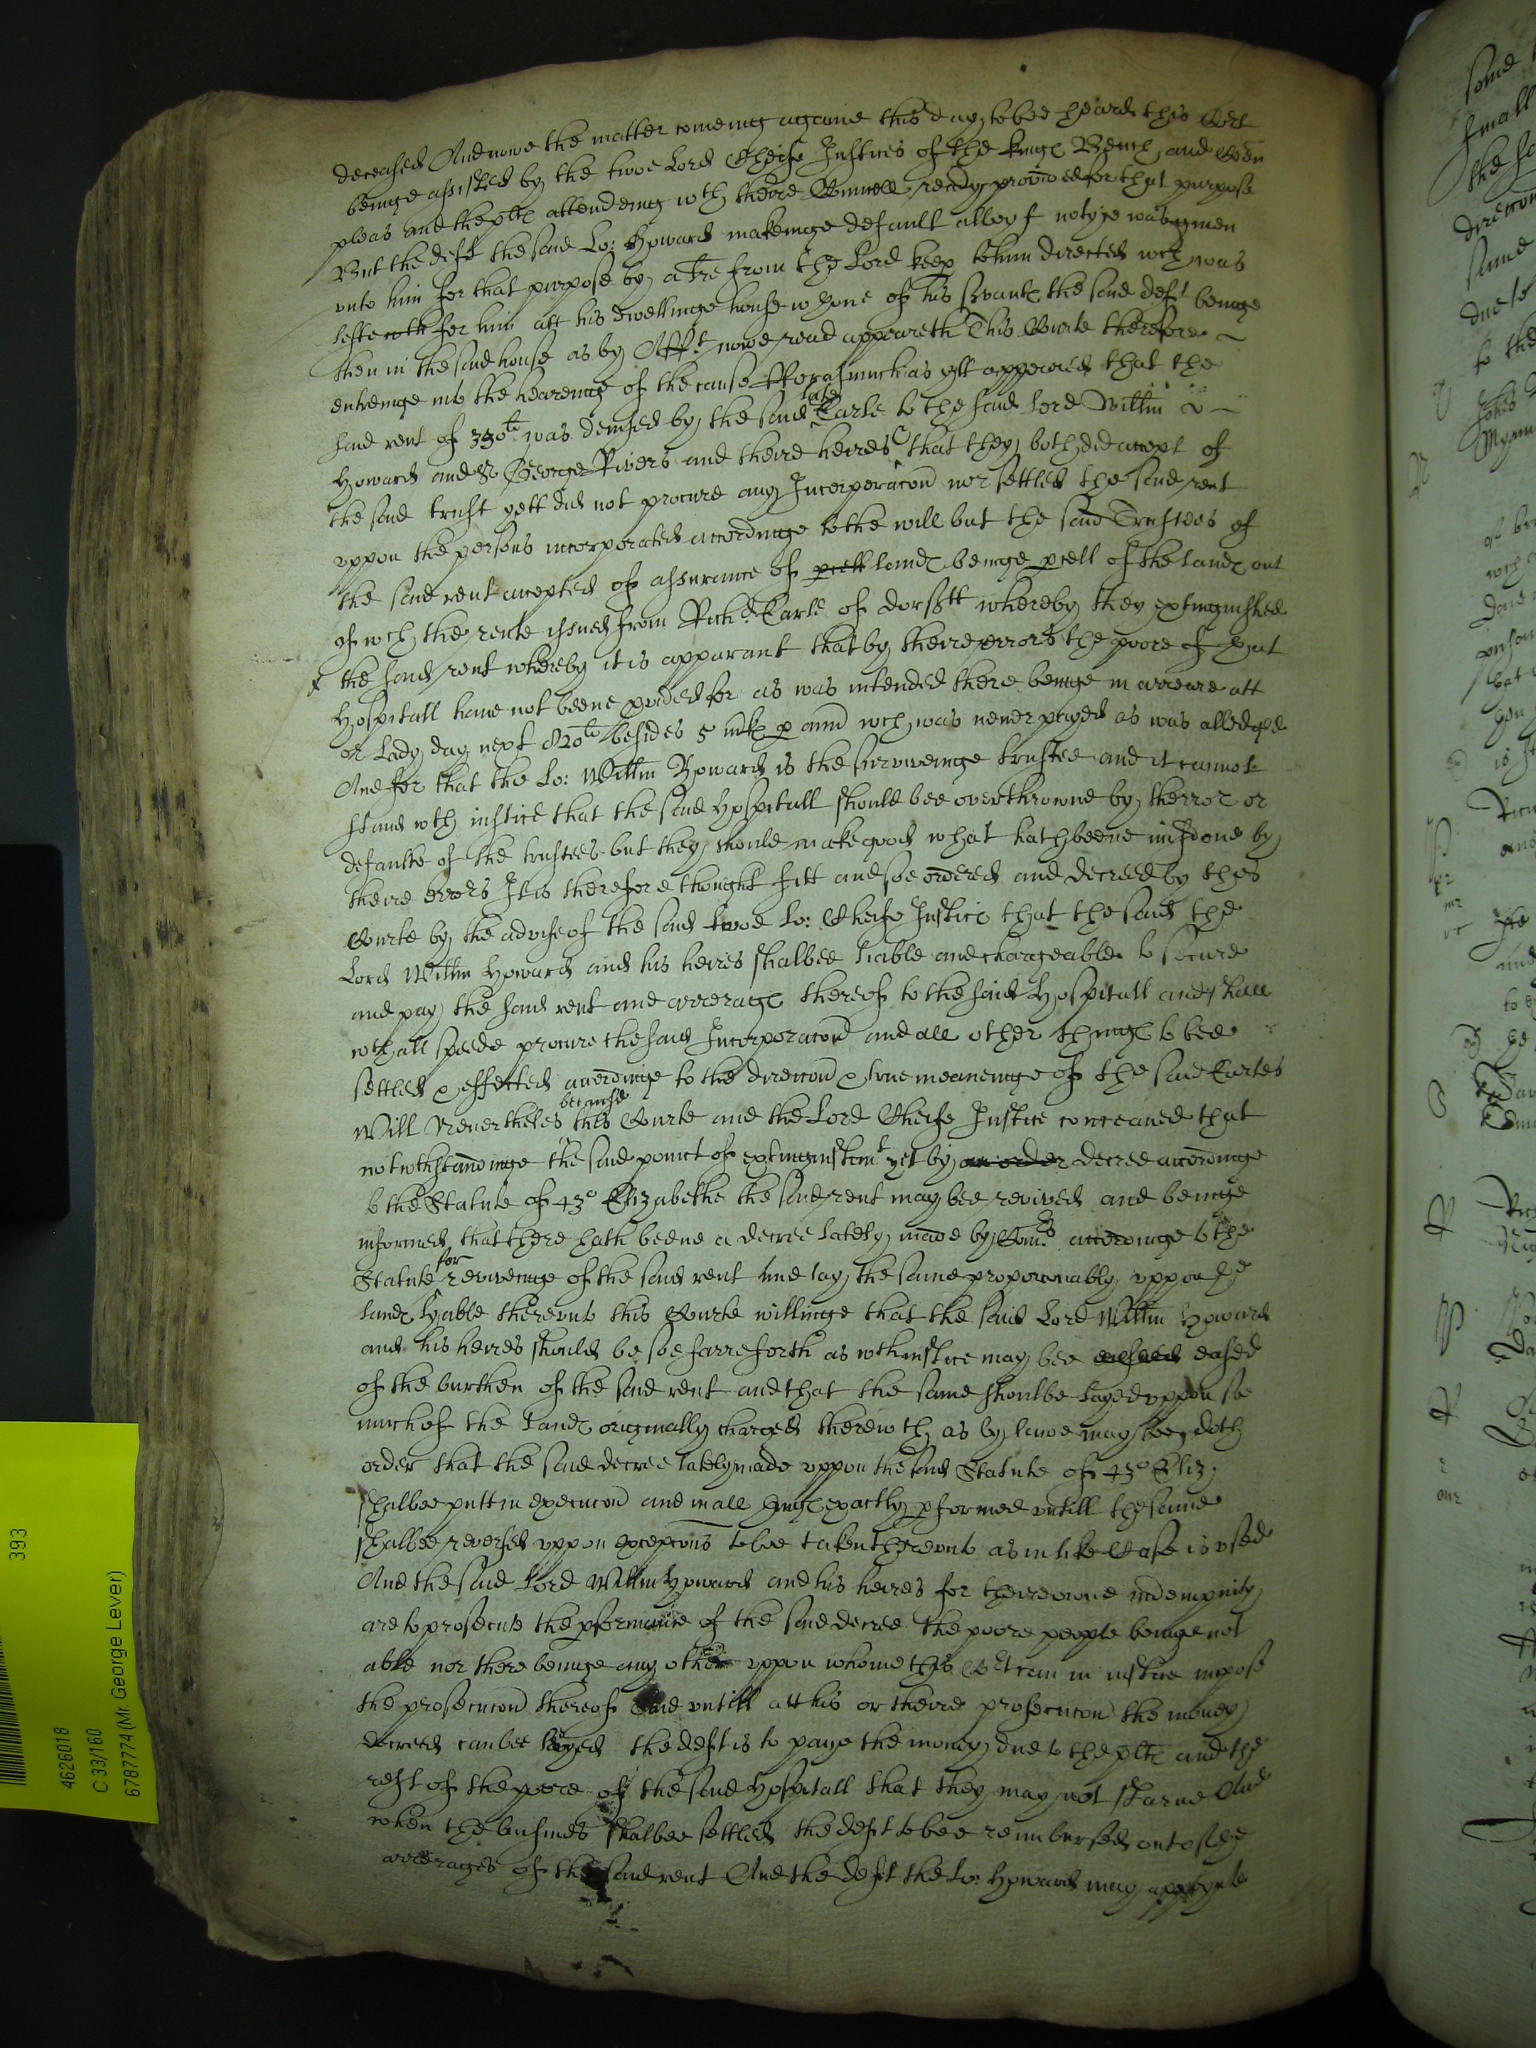 deceased And nowe the matter comeing againe this day to bee heard this Cort
beinge assisted by the twoe Lord Cheife Justices of the kings Bench and Comon
pleas and the plts attending wth theire Councell ready provided for that purpose
But the deft the said Lo: Howard makeinge default alley f notice was given
unto him for that purpose by a lre from the Lord keep to him directed wch was
lefte wth for him att his dwellinge house wth one of his servants the said deft beinge
then in the said house as by Afft nowe read appeareth This Courte therefore
entreinge into the heareinge of the cause Forasmuch as ytt appeared that the
said rent of 330li was devised by the said late Earle to the said lord Willm
Howard and Sr George Rivers and theire heires that they both did accept of
the said trust yett did not procure any Incorporacon nor settled the said rent
uppon the persons incorporated accordinge to the will but the said Trustees of
the said rent accepted of assurance of pcell lands beinge pcell of the lands out
of wch the rente issued from Richd Earle of Dorsett whereby they extinguished
the said rent whereby it is apparant that by theire errors the poore of that
Hospitall have not beene pvided for as was intended there beinge in arreare att
or Lady day next 820li besides 5 mks p ann wch was never payed as was alledged
And for that the Lo: Willm Howard is the surviveinge trustee and it cannot
stand wth iustice that the said Hospitall should bee overthrowne by therror or
defaulte of the trustees but they should make good what hath beene misdone by
theire errors It is therefore thought fitt and soe ordered and decreed by this
Courte by the advise of the said twoe Lo: Cheife Justices that the said the
Lord Willm Howard and his heires shalbee liable and chargeable to secure
and pay the said rent and arrerages thereof to the said Hospitall and shall
wth all speede procure the said Incorporacon and all other things to bee
settled & effected accordinge to the direccon & true meaneinge of the said Earles
Will Nevertheles because this Courte and the Lord Cheife Justice conceaved that
notwthstandinge the said point of extinguishmt yet by an order decree accordinge
to the Statute of 43o Elizabethe the said rent may bee revived and beinge
informed that there hath beene a decree lately made by Comrs accordinge to the
Statute for reviveinge of the said rent and lay the same proporconably uppon the
lands lyable thereunto this Courte willinge that the said Lord Willm Howard
and his heires should be soe farre forth as wth iustice may bee eased
of the burthen of the said rent and that the same shoulbe layed uppon soe
much of the lands originally charged therewth as by lawe may bee doth
order that the said decree lately made uppon the said Statute of 43o Eliz:
shalbee putt in execucon and in all things exactly pformed untill the same
shalbee reversed uppon excepcons to bee taken thereunto as in like Case is used
And the said Lord Willm Howard and his heires for theire owne indempnity
are to prosecute the pformance of the said decree the poore people beinge not
able nor there beinge any other uppon whome this Cort can in iustice impose
the prosecucon thereof And untill att his or theire prosecucon the money
decreed can bee layed the deft is to paye the money due to the plts and the
rest of the poore of the said Hospitall that they may not starve And
when the busines shalbee settled the deft to bee reimbursed out of the
arrerages of the said rent And the deft the Lo: Howard may
393
4626018
C 33/160
6787774 (Mr. George Lever)